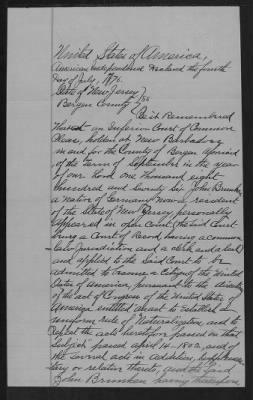 United States of America,
American Independence Declared the fourth
Day of July, 1776.
State of New Jersey } ss
Bergen County
Be it Remembered
That at an Inferior Court of Common
Pleas, holden at New Barbadoes
in and for the County of Bergen
of the term of September in the year
of our Lord one thousand eight
hundred and Seventy Six John
a native of Germany now a resident
of the State of New Jersey personally
Appeared in open Court (the Said Court
being a Court of Record having a common
Law Jurisdiction and a clerk and a seal)
and applied to the Said Court to be
admitted to become a Citizen of the United
States of America, pursuant to the
of the act of Congress of the United States of
America entitled an act to Establish a
uniform rule of Naturalization, and to
Repeal the acts heretofore passed on that
Subject passed April 14-1802, and of
the several acts in addition, supplemen
tary or relative thereto, and the Said
John having thereupon